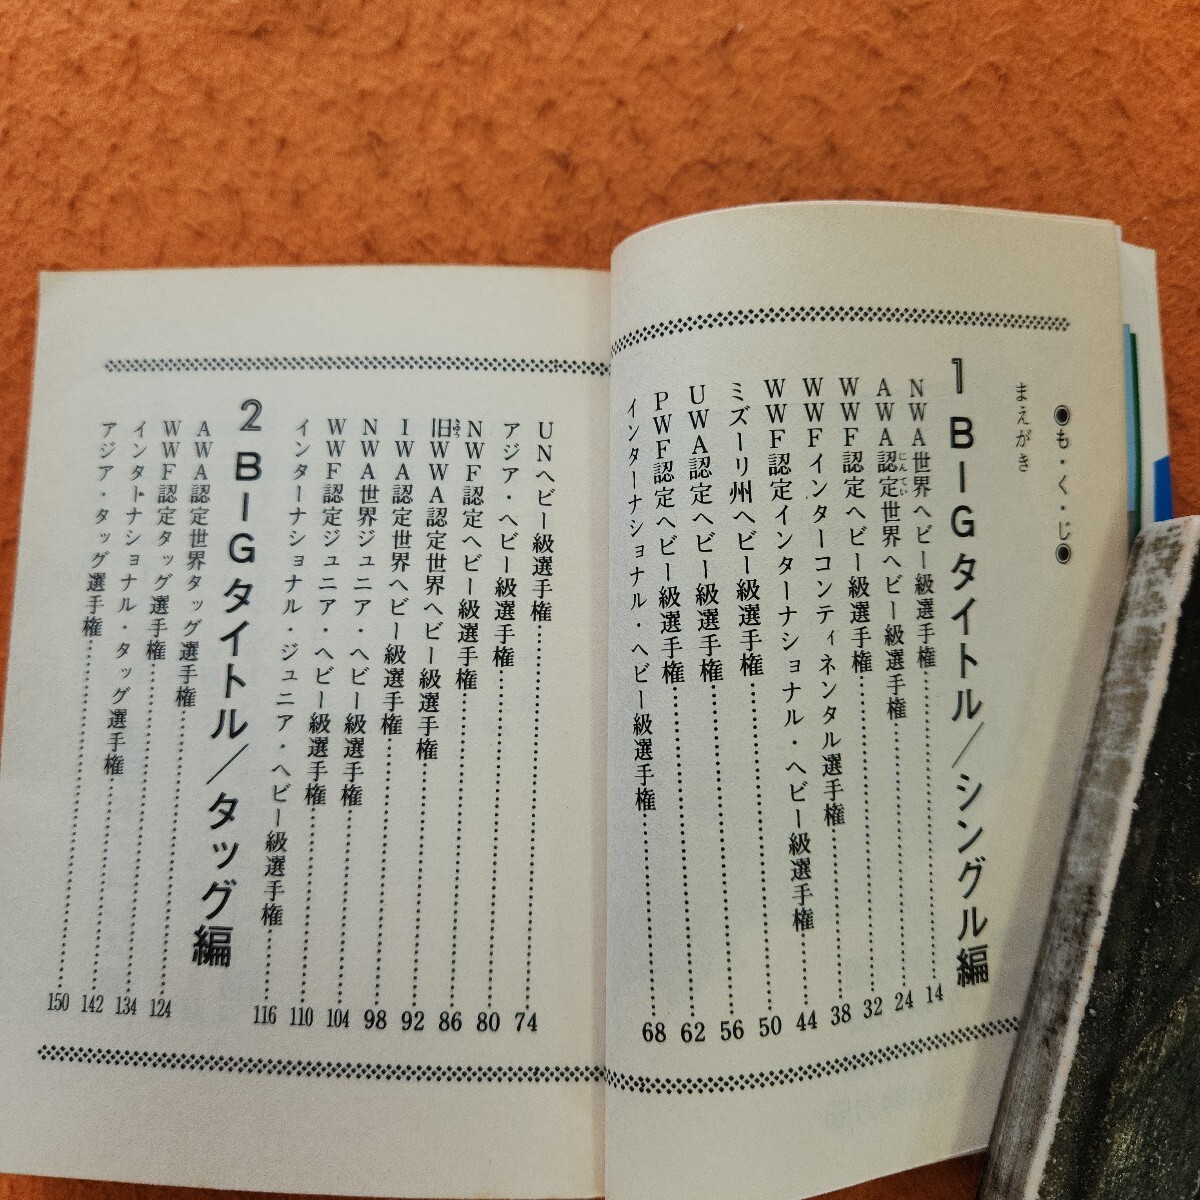 ◉も・く・じ◉
まえがき
1 BIGタイトル/シングル編
NWA世界ヘビー級選手権……………14
AWA認定世界ヘビー級選手権……………24
にんてい
WWF認定ヘビー級選手権……………32
WWFインターコンティネンタル選手権……………38
WWF認定インターナショナル・ヘビー級選手権……………44
ミズーリ州ヘビー級選手権……………50
UWA認定ヘビー級選手権……………56
PWF認定ヘビー級選手権……………62
インターナショナル・ヘビー級選手権……………68
UNヘビー級選手権……………74
アジア・ヘビー級選手権……………80
NWF認定ヘビー級選手権……………86
旧WWA認定世界ヘビー級選手権……………92
きゅう
IWA認定世界ヘビー級選手権……………98
NWA世界ジュニア・ヘビー級選手権……………104
WWF認定ジュニア・ヘビー級選手権……………110
インターナショナル・ジュニア・ヘビー級選手権……………116
2 BIGタイトル/タッグ編
AWA認定世界タッグ選手権……………124
WWF認定タッグ選手権……………134
インターナショナル・タッグ選手権……………142
アジア・タッグ選手権……………150